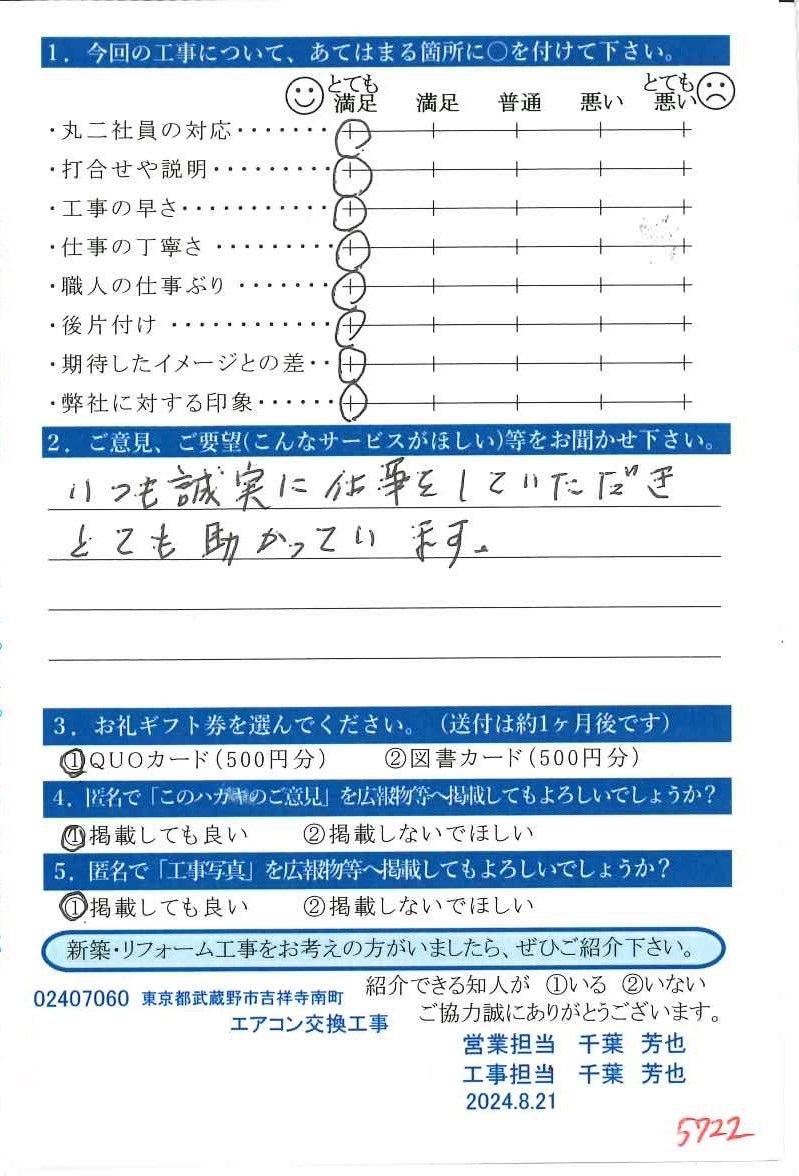 1．今回の工事について、あてはまる箇所に○を付けて下さい。
とても満足 満足 普通 悪い とても悪い
・丸二社員の対応・・・・・・・
・打合せや説明・・・・・・・・・
・工事の早さ・・・・・・・・・・・
・仕事の丁寧さ ・・・・・・・・・
・職人の仕事ぶり ・・・・・・・
・後片付け ・・・・・・・・・・・・
・期待したイメージとの差・・
・弊社に対する印象・・・・・・
2．ご意見、ご要望(こんなサービスがほしい)等をお聞かせ下さい。
いつも誠実に仕事をしていただき
とても助かっています。
3．お礼ギフト券を選んでください。（送付は約1ヶ月後です）
①QUOカード(500円分） ②図書カード(500円分）
4．匿名で「このハガキのご意見」を広報物等へ掲載してもよろしいでしょうか？
①掲載しても良い ②掲載しないでほしい
5．匿名で「工事写真」を広報物等へ掲載してもよろしいでしょうか？
①掲載しても良い ②掲載しないでほしい
新築・リフォーム工事をお考えの方がいましたら、ぜひご紹介下さい。
紹介できる知人が ①いる ②いない
02407060 東京都武蔵野市吉祥寺南町
ご協力誠にありがとうございます。
エアコン交換工事
営業担当 千葉 芳也
工事担当 千葉 芳也
2024.8.21
5722